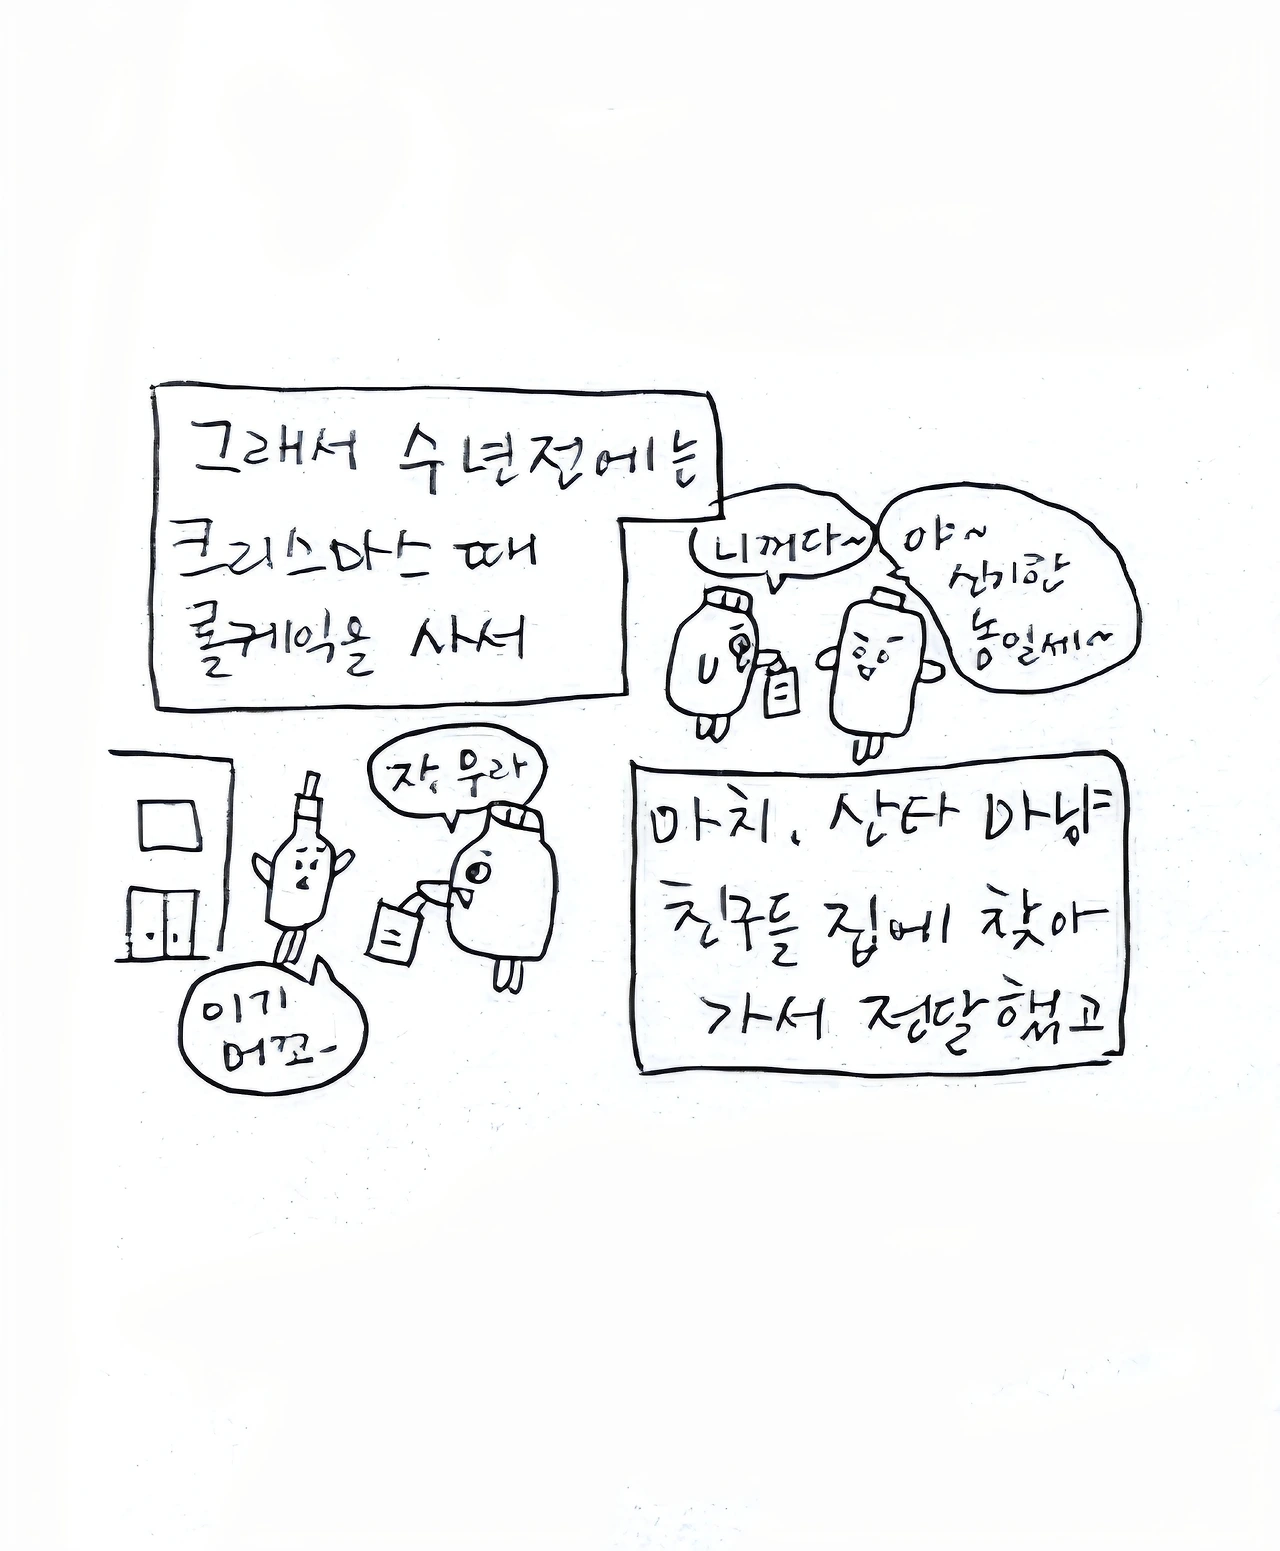 그래서 수 년전에는
크리스마스 때
롤케익을 사서
니꺼다~
야~
신기한
놈일세~
자, 무라
이기
머꼬-
마치, 산타 마냥
친구들 집에 찾아
가서 전달했고